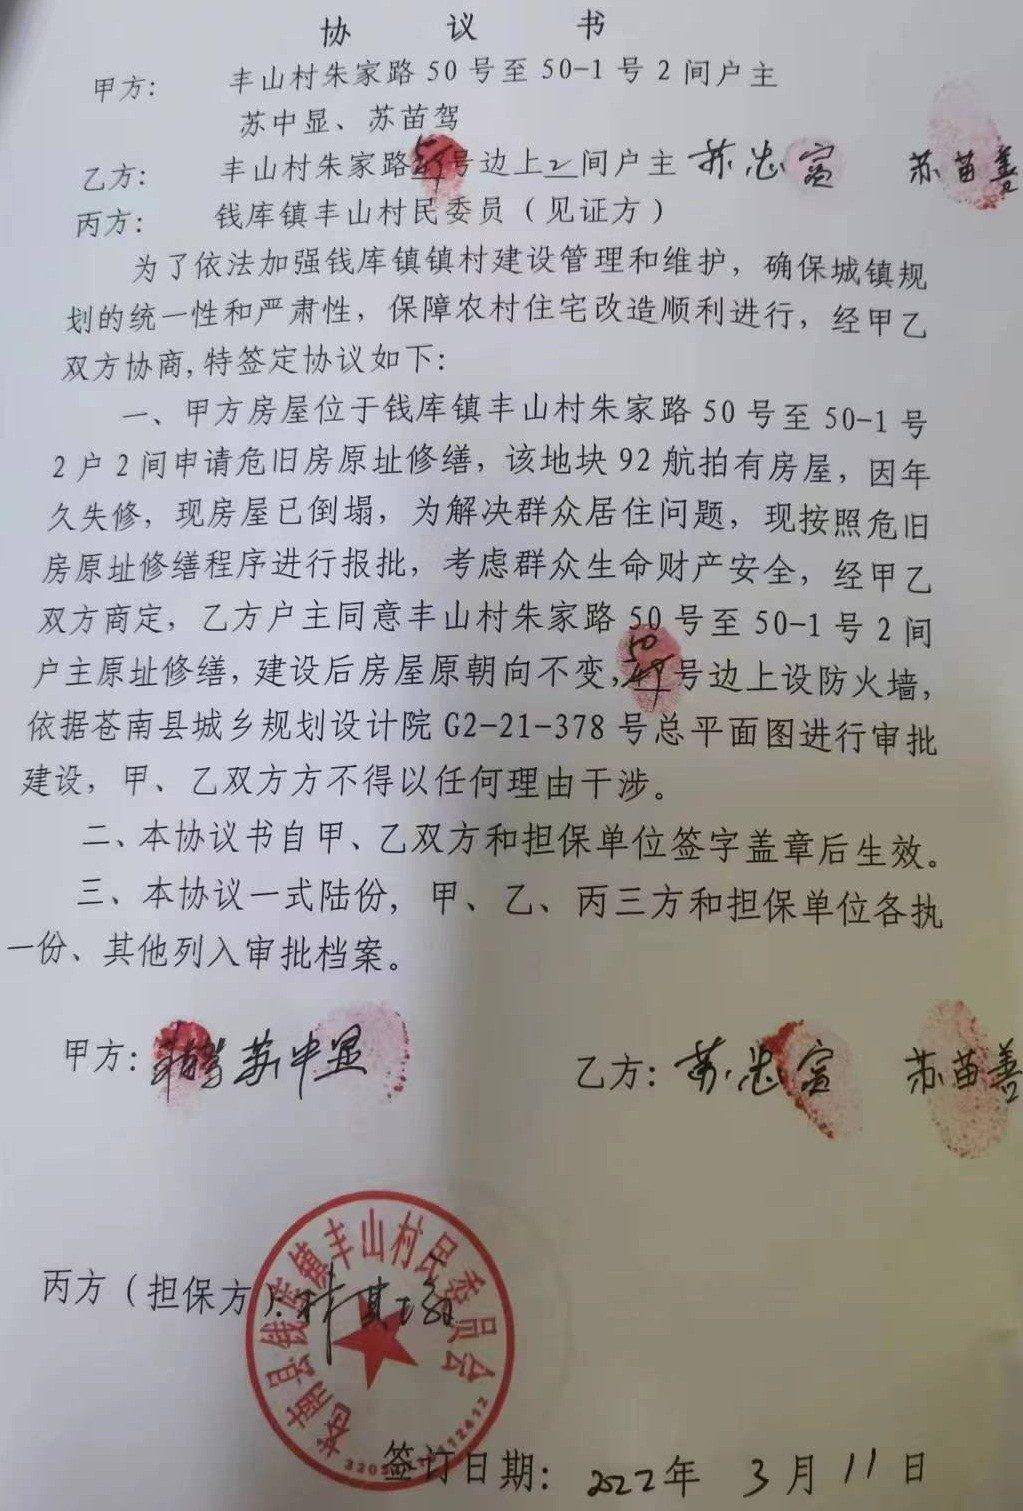 协 议 书
甲方： 丰山村朱家路50号至50-1号2间户主
苏中显、苏苗驾
乙方： 丰山村朱家路号边上2间户主 苏忠富 苏苗善
丙方： 钱库镇丰山村民委员（见证方）
为了依法加强钱库镇镇村建设管理和维护，确保城镇规
划的统一性和严肃性，保障农村住宅改造顺利进行，经甲乙
双方协商,特签定协议如下：
一、甲方房屋位于钱库镇丰山村朱家路50号至50-1号
2户2间申请危旧房原址修缮，该地块92航拍有房屋，因年
久失修，现房屋已倒塌，为解决群众居住问题，现按照危旧
房原址修缮程序进行报批，考虑群众生命财产安全，经甲乙
双方商定，乙方户主同意丰山村朱家路50号至50-1号2间
户主原址修缮，建设后房屋原朝向不变,50号边上设防火墙，
依据苍南县城乡规划设计院G2-21-378号总平面图进行审批
建设，甲、乙双方方不得以任何理由干涉。
二、本协议书自甲、乙双方和担保单位签字盖章后生效。
三、本协议一式陆份，甲、乙、丙三方和担保单位各执
一份、其他列入审批档案。
甲方： 苏中显 乙方：苏忠富 苏苗善
丙方（担保方）：
苍南县钱库镇丰山村民委员会
签订日期： 2022年 3月11日